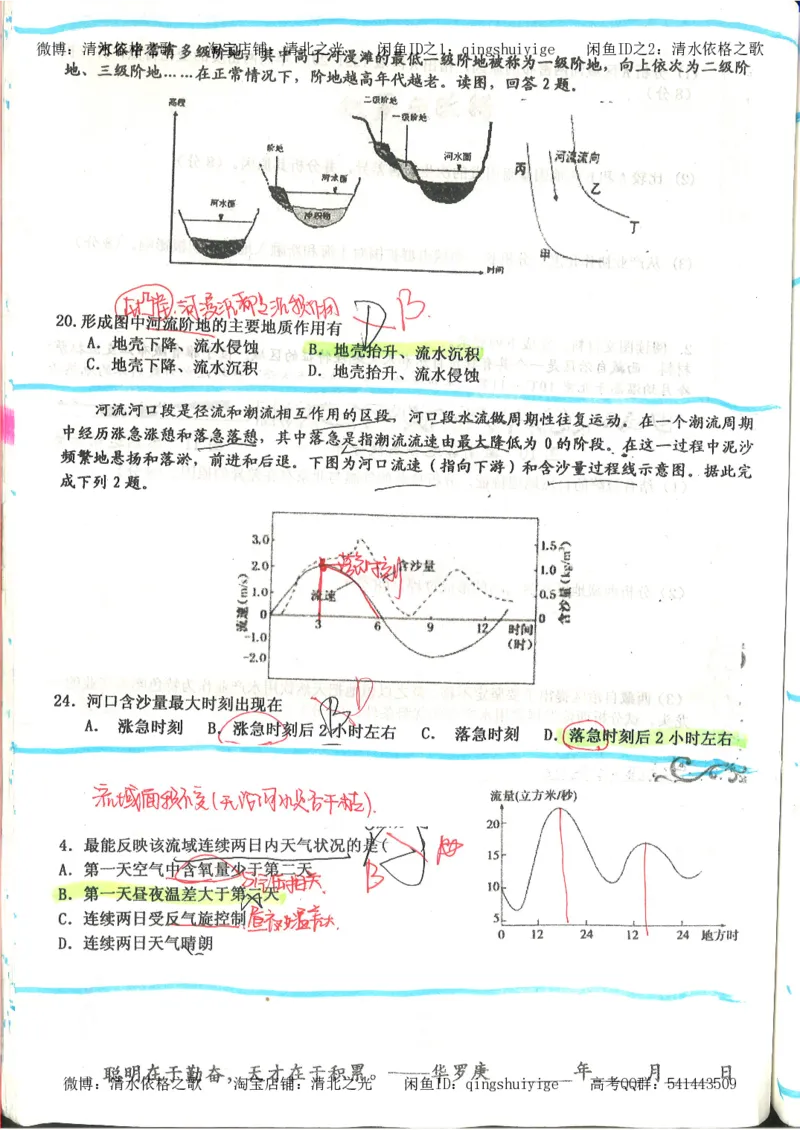 微博：清水依格之歌　　淘宝店铺：清北之光　　闲鱼ID之1：qingshuiyige　　闲鱼ID之2：清水依格之歌
河谷中常有多级阶地，其中高于河漫滩的最低一级阶地被称为一级阶地，向上依次为二级阶
地、三级阶地……在正常情况下，阶地越高年代越老。读图，回答2题。
高程
阶地
河水面
河水面
冲积物
二级阶地
一级阶地
河水面
时间
丙
河流流向
乙
丁
甲
20.形成图中河流阶地的主要地质作用有
B.
A．地壳下降、流水侵蚀
B．地壳抬升、流水沉积
C．地壳下降、流水沉积
D．地壳抬升、流水侵蚀
河流河口段是径流和潮流相互作用的区段，河口段水流做周期性往复运动。在一个潮流周期
中经历涨急涨憩和落急落憩，其中落急是指潮流流速由最大降低为 0的阶段。在这一过程中泥沙
频繁地悬扬和落淤，前进和后退。下图为河口流速（指向下游）和含沙量过程线示意图。据此完
成下列2题。
3.0
2.0
1.0
0
-1.0
-2.0
流速(m/s)
落急时刻
含沙量
流速
3
6
9
12
时间
(时)
1.5
1.0
0.5
0
含沙量(kg/m³)
24．河口含沙量最大时刻出现在
D
A． 涨急时刻
B．涨急时刻后2小时左右
C． 落急时刻
D．落急时刻后2小时左右
流域面积不变(无论河水是否干枯).
4．最能反映该流域连续两日内天气状况的是(
A．第一天空气中含氧量少于第二天
B．第一天昼夜温差大于第二天
B
C．连续两日受反气旋控制
昼夜温差大.
D．连续两日天气晴朗
流量(立方米/秒)
20
15
10
5
0
12
24
12
24
地方时
聪明在于勤奋，天才在于积累。——华罗庚
年　　月　　日
微博：清水依格之歌　　淘宝店铺：清北之光　　闲鱼ID：qingshuiyige　　高考QQ群：541443509